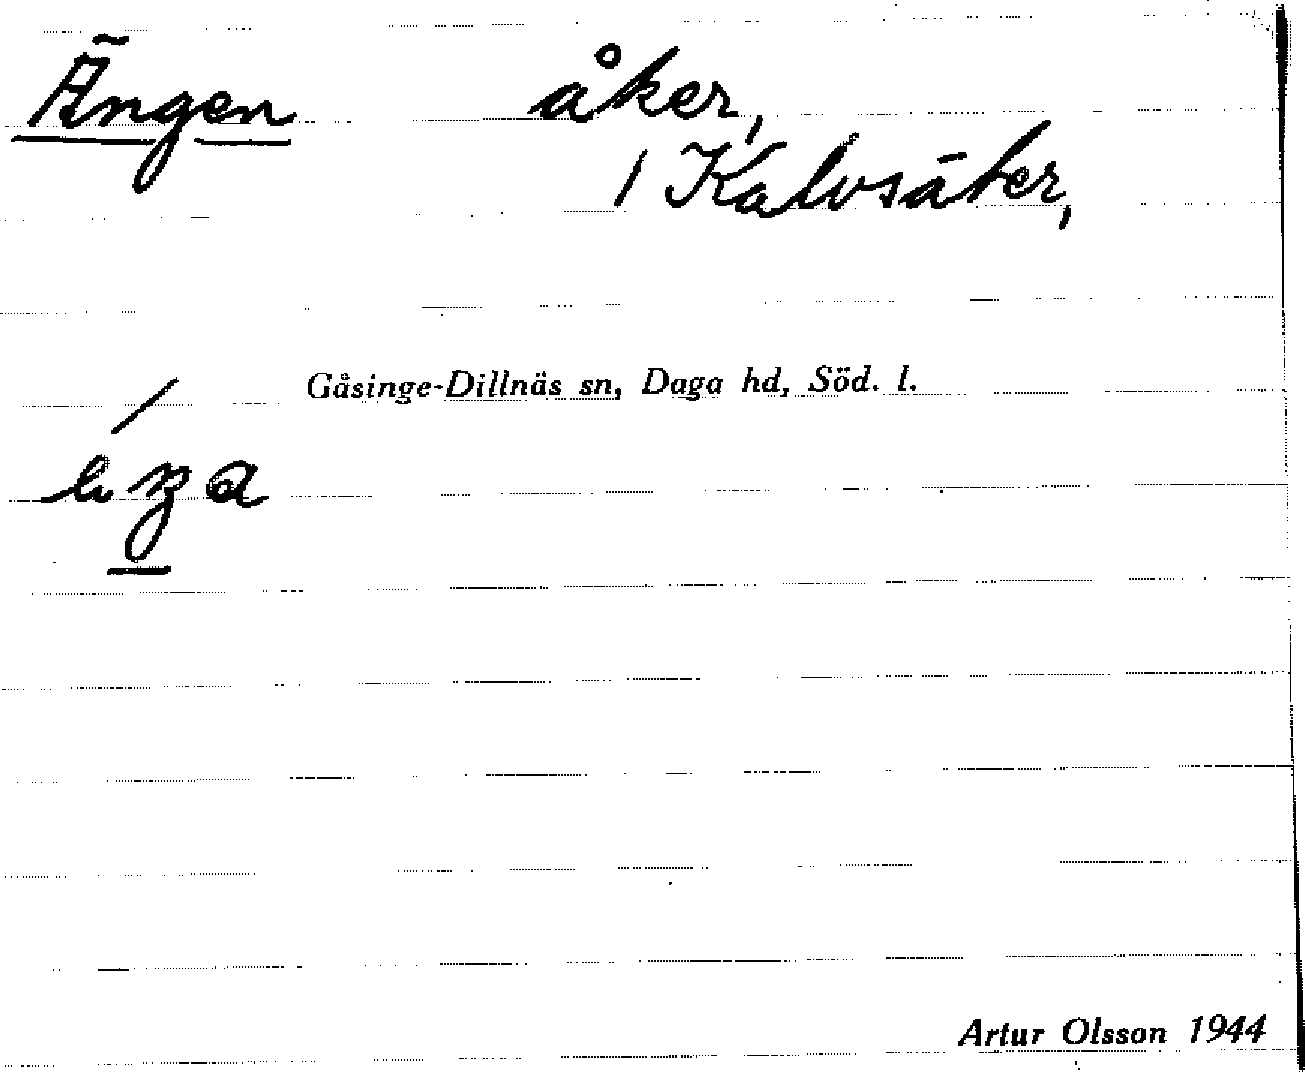 Ängen åker,
/ Kalvsäter,
Gåsinge-Dillnäs sn, Daga hd, Söd. l.
Artur Olsson 1944